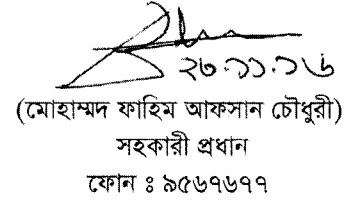 ২৩.১১.১৬
(মোহাম্মদ ফাহিম আফসান চৌধুরী)
সহকারী প্রধান
ফোন ঃ ৯৫৬৭৬৭৭